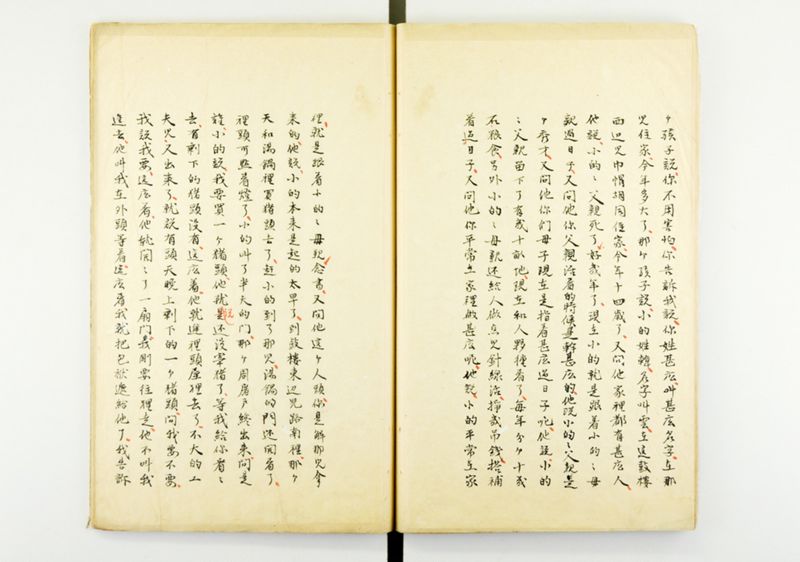 个孩子說你不用害怕你告訴我說你姓甚庅叫甚庅名字在那
兒住家今年多大了那个孩子說小的姓韓名字叫雲在這鼓樓
西边兒巾帽胡同住家今年十四歲了又問他家裡都有甚庅人
他說小的〻父親死了好幾年了現在小的就是跟着小的〻母
親過日子又問他你父親活着的時候是幹甚庅的他說小的〻父親是
个秀才又問他你们母子現在是指着甚庅過日子呢他說小的
〻父親留下了有幾十畝地現在和人夥種着了每年分个十幾
石粮食另外小的〻母親还給人做点兒針線活掙幾吊錢搭補
着過日子又問他你平常在家裡做甚庅呢他說小的平常在家
裡就是跟着小的〻母親念書又問他這个人頭你是解那兒拿
來的他說小的本来是起的太早了到鼓樓東边兒路南裡那个
天和湯鍋裡買猪頭去了赶小的到了那兒湯鍋的門还開着了
裡頭可點着燈了小的叫了半天的门那个周房户終出來問是
誰小的說我要買一个猪頭他就說还沒宰猪了等我給你看〻
去有剩下的猪頭沒有這庅着他就進裡頭屋裡去了不大的工
夫兒又出來了就說有頭天晚上剩下的一个猪頭問我要不要
我說我要這庅着他就開〻了一扇门我剛要往裡走他不叫我
進去他叫我在外頭等着這庅着我就把包袱遞給他了我告訴